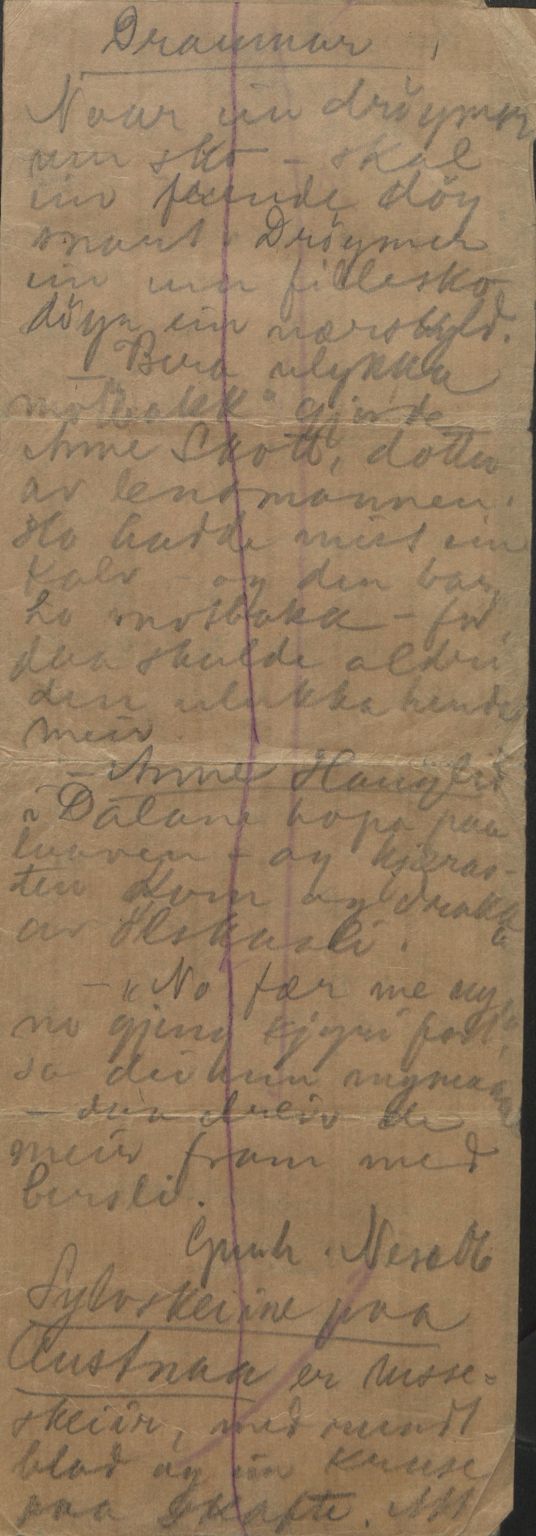 Draumar
Naar ein drøymer
um sko – skal
ein frende døy
snart. Drøymer
ein um fillesko
døyr ein nærskyld.
Bera ulykka
motbakk" gjorde
Anne Skott, dotter
av lensmannen.
Ho hadde mist ein
kalv – og den bar
ho motbakk – for
daa skulde aldri
den ulukka hende
meir.
– Anne Haugli
i Dalane
laaven – og kjæras-
ten kom og drakk
av ølskaali.
– "No fær me ny
no gjeng kjyri fort,
so dei um nymaan
– daa bleiv de
meir fram med
beisli.
Gunh. Neset
Sylvskeiine paa
Austnaa er russe-
skeier, med rundt
blad og ein kruse
paa skafte.